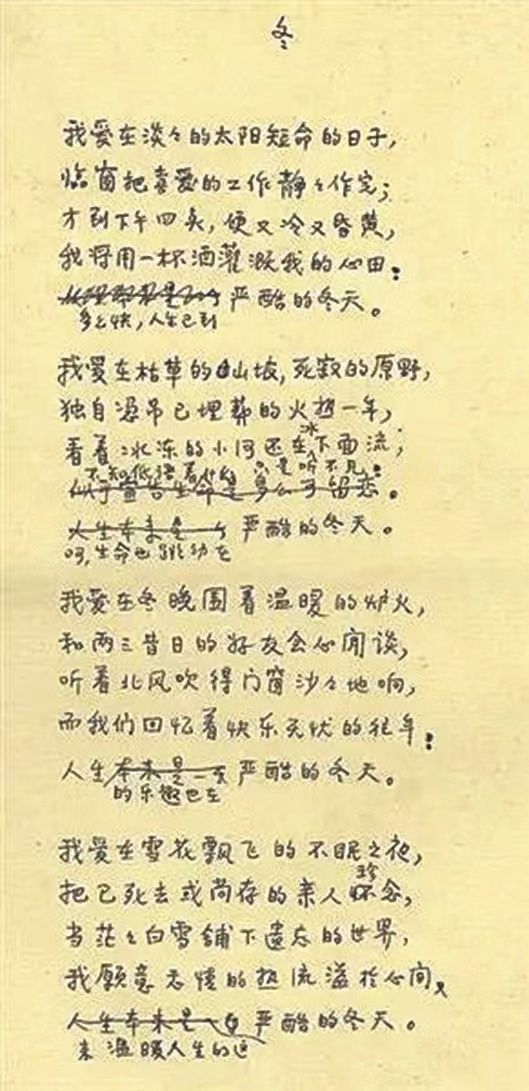 冬
我爱在淡々的太阳短命的日子,
临窗把喜爱的工作静々作完;
才到下午四点,便又冷又昏黄,
我将用一杯酒灌溉我的心田:
严酷的冬天。
多么快,人生已到
我爱在枯草的山坡,死寂的原野,
独自凭吊已埋葬的火热一年,
冰
看着冰冻的小河还在下面流;
不知低语着什么 只是听不见:
似乎宣告生命是多么可留恋。
人生本来是一个严酷的冬天。
呵,生命也跳动在
我爱在冬晚围着温暖的炉火,
和两三昔日的好友会心闲谈,
听着北风吹得门窗沙々地响,
而我们回忆着快乐无忧的往年:
人生本来是一个严酷的冬天。
的乐趣也在
我爱在雪花飘飞的不眠之夜,
珍
把已死去或尚存的亲人怀念,
当茫々白雪铺下遗忘的世界,
我愿意感情的热流溢於心间,
人生本来是一个严酷的冬天。
来温暖人生的这